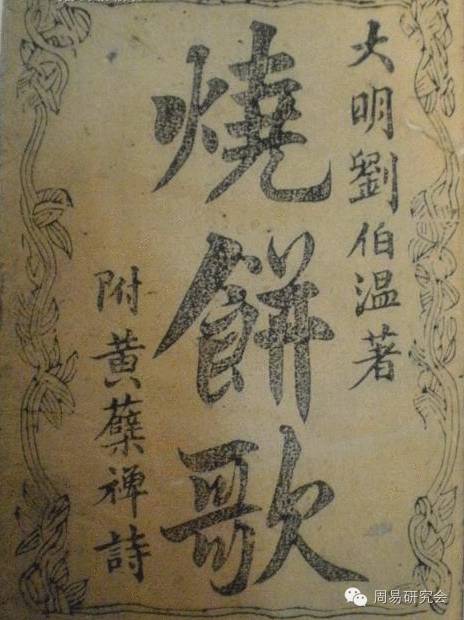 大明劉伯温著
燒餅歌
附黃蘗禪詩
周易研究会